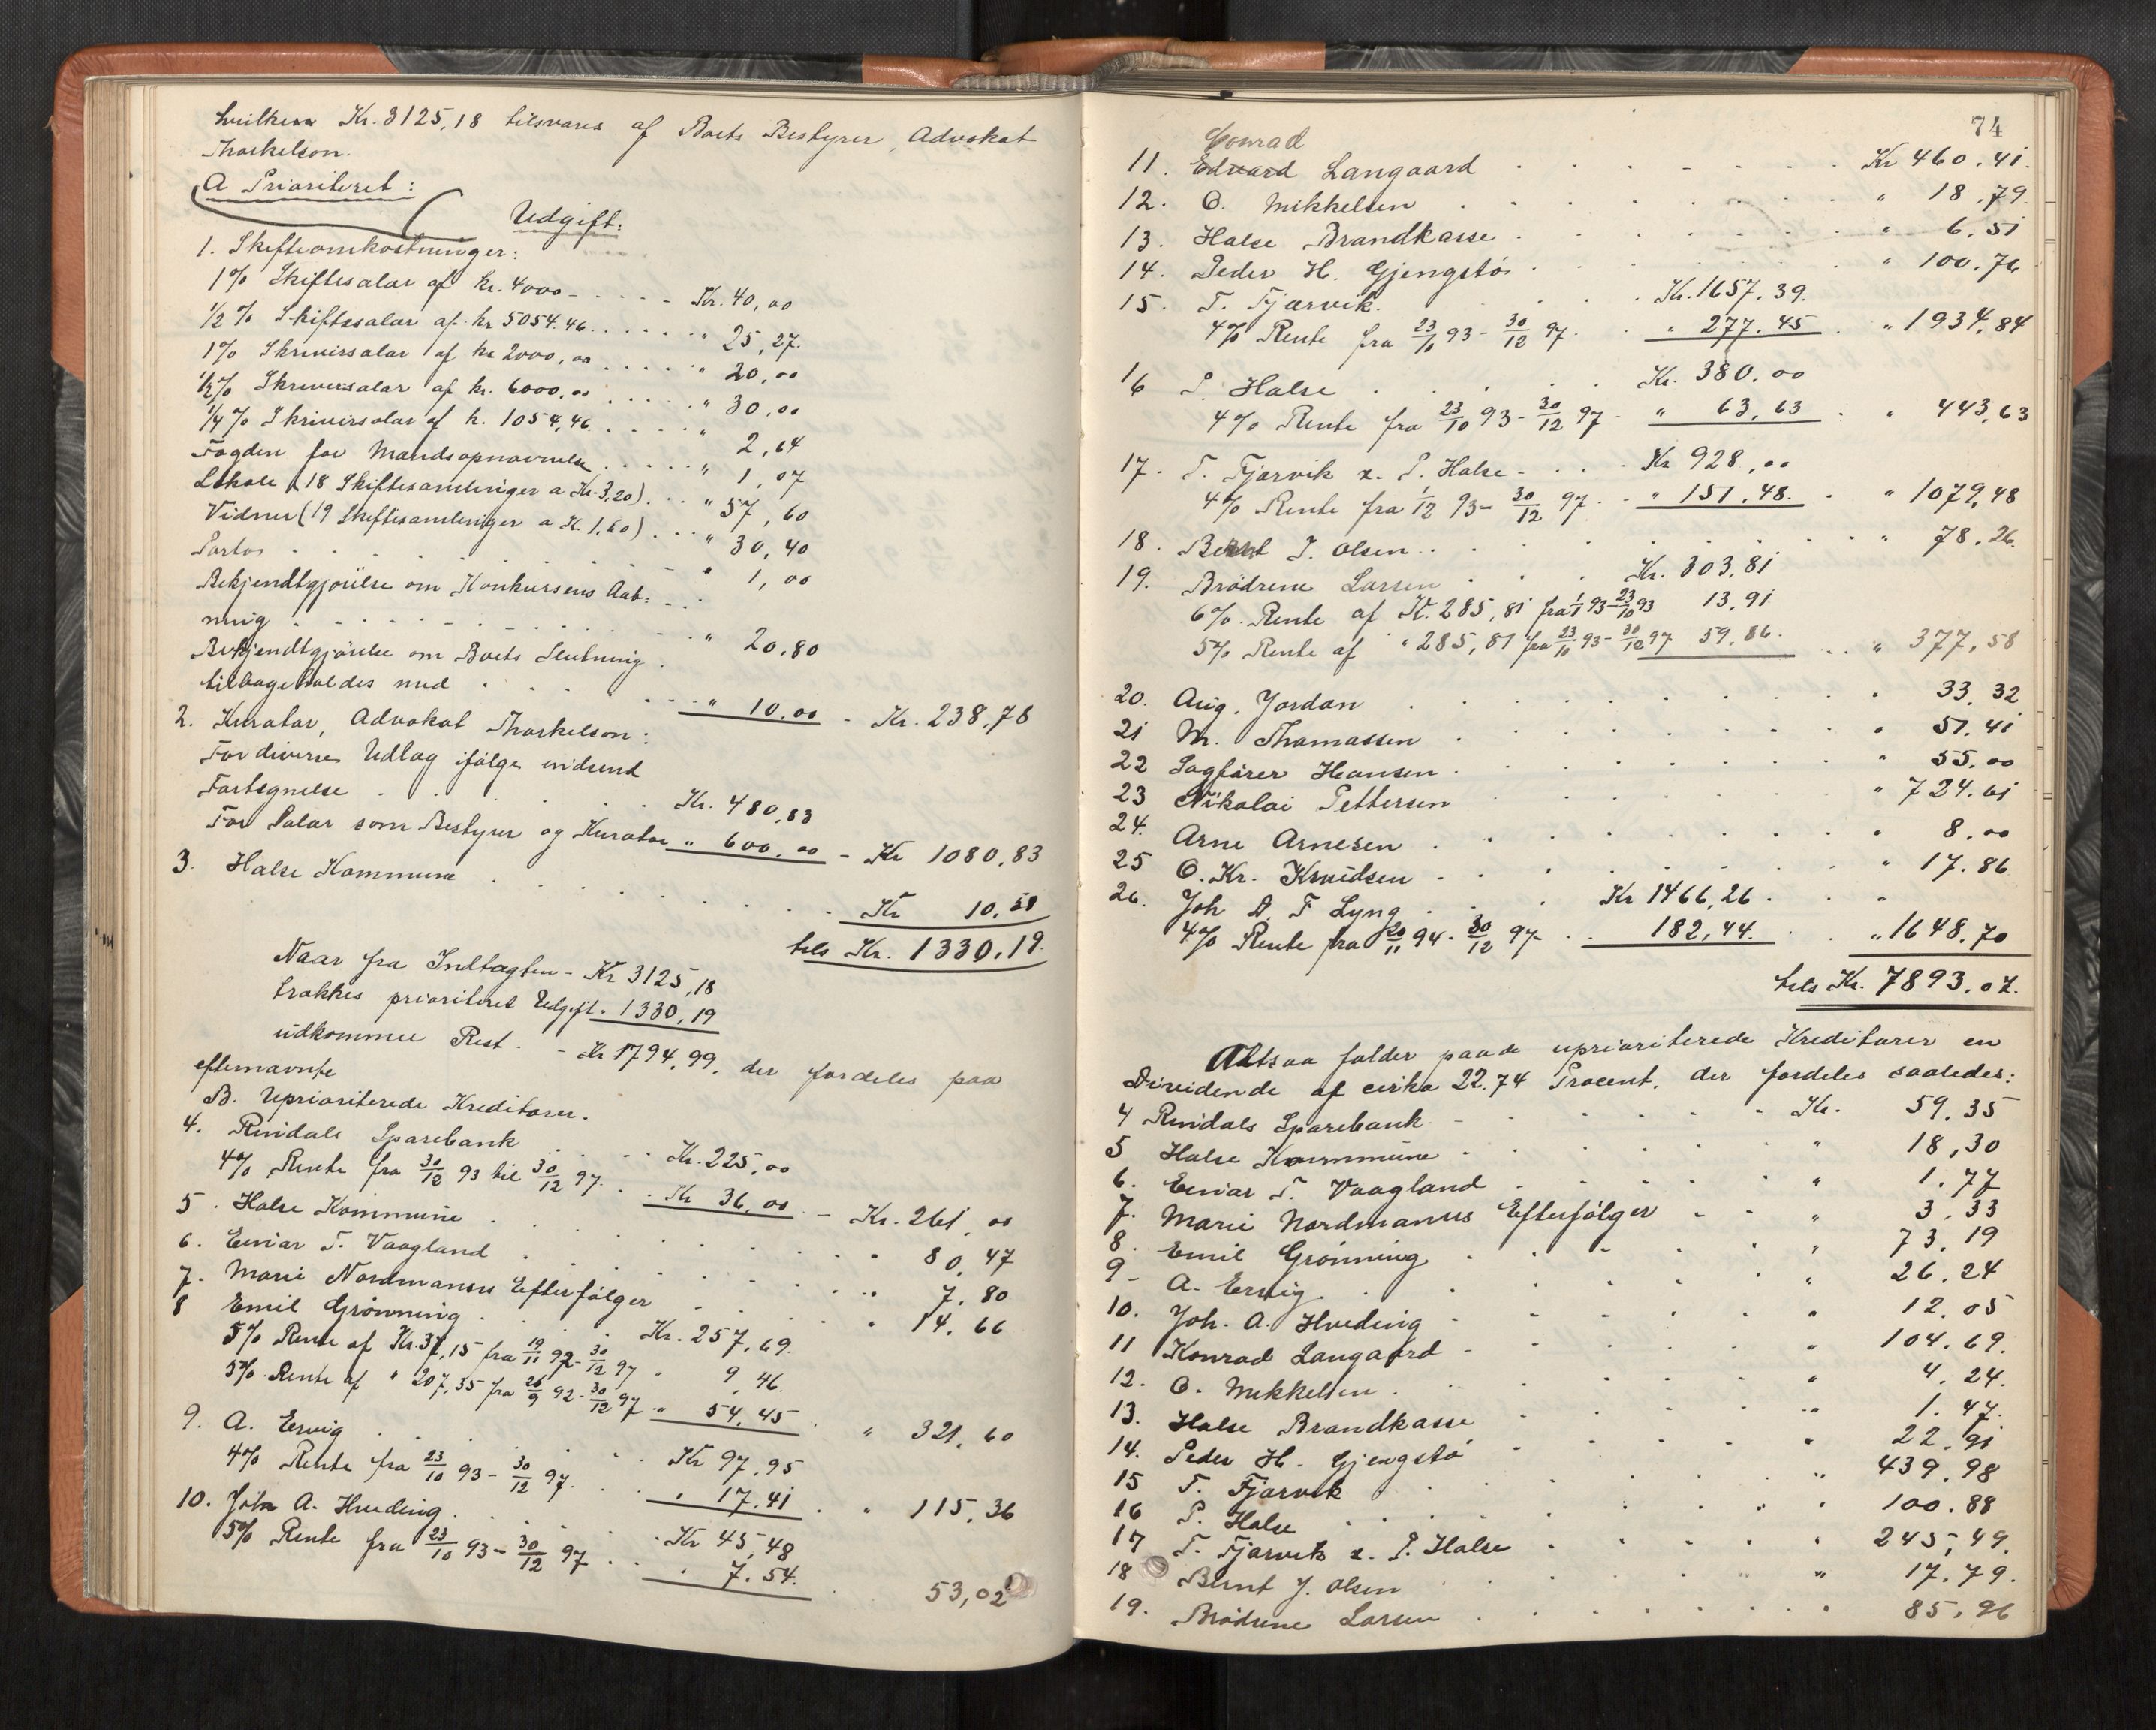 hvilken Kr. 3125,18 tilsvares af Boets Bestyrer, Advokat
Thorkelson.
A Prioriteret:
Udgift:
1. Skifteomkostninger:
1% Skiftesalar af kr. 4000 - Kr. 40,00
1/2 % Skiftesalar af kr 5054.46 " 25,27.
1% Skriversalar af kr 2000,00 " 20,00
1/2% Skriversalar af kr. 6000,00 " 30,00
1/4 % Skriversalar af k. 1054,46 " 2,64
Fogden for Mandsopnævnelse " 1,07
Lokale (18 Skiftesamlinger a Kr. 3,20) " 57,60
Vidner (19 Skiftesamlinger a K 1,60) " 30,40
Porto " 1,00
Bekjendtgjörelse om Konkursens Aab-
ning " 20,80
Bekjendtgjörelse om Boets Slutning
tilbageholdes med " 10.00 - Kr. 238,78
2. Kurator, Advokat Thorkelson:
For diverse Udlæg ifölge indsend
Fortegnelse Kr. 480,83
For Salar som Bestyrer og Kurator " 600,00 - Kr 1080,83
3. Halse Kommune Kr 10,58
tils Kr. 1330,19.
Naar fra Indtægten - Kr 3125,18
trækkes prioriteret Udgift - 1330,19
udkommer Rest - Kr 1794,99, der fordeles paa
efternævnte
B. Uprioriterede Kreditorer.
4. Rindals Sparebank Kr. 225,00
4% Rente fra 30/12 93 til 30/12 97. Kr 36,00 - Kr. 261,00
5. Halse Kommune " 80,47
6. Einar T. Vaagland " 7.80
7. Marie Nordmanns Efterfölger " 14.66
8 Emil Grönning Kr. 257,69.
5% Rente af Kr. 37,15 fra 19/11 92 - 30/12 97 " 9,46.
5% Rente af " 207,35 fra 26/9 92 - 30/12 97 " 54,45 " 321,60
9. A. Ervig Kr 97,95
4% Rente fra 23/10 93 - 30/12 97. " 17.41 " 115,36
10. Joh A. Hveding Kr 45,48
5% Rente fra 23/10 93 - 30/12 97 " 7.54. 53,02
74
Conrad
11. Edvard Langaard Kr 460.41.
12. O. Mikkelsen " 18,79.
13. Halse Brandkasse " 6.51
14. Peder H. Gjengstö " 100.76
15. T. Fjærvik. Kr. 1657.39.
4% Rente fra 23/10 93 - 30/12 97. " 277.45 " 1934,84
16 P. Halse Kr. 380.00
4% Rente fra 23/10 93 - 30/12 97 " 63,63 " 443,63
17. T. Fjærvik & P. Halse - Kr 928,00
4% Rente fra 1/12 93 - 30/12 97 " 151.48. " 1079,48
18. Bernt J. Olsen " 78.26.
19. Brödrene Larsen Kr. 303,81
6% Rente af Kr. 285,81 fra 1/1 93 - 23/10 93 13,91
5% Rente af " 285,81 fra 23/10 93 - 30/12 97 59,86. " 377,58
20. Aug. Jordan " 33.32
21 M. Thomassen " 51.41
22 Sagförer Hansen " 55.00
23 Nikolai Pettersen " 724.61
24. Arne Arnesen " 8.00
25 O. Kr. Knudsen " 17.86
26. Joh D. F Lyng Kr 1466,26.
4% Rente fra 20/11 94 - 30/12 97 182,44. " 1648.70
tils Kr. 7893.07.
Altsaa falder paa de uprioriterede Kreditorer en
Dividende af cirka 22.74 Procent, der fordeles saaledes:
4 Rindals Sparebank - Kr. 59.35
5 Halse Kommune " 18,30
6. Einar T. Vaagland " 1.77
7. Marie Nordmanns Efterfölger " 3.33
8. Emil Grönning " 73.19
9 - A. Ervig. " 26.24
10. Joh. A. Hveding " 12.05
11 Konrad Langaard " 104.69.
12. O. Mikkelsen " 4.24.
13. Halse Brandkasse " 1.47.
14. Peder H. Gjengstö " 22.91
15 T. Fjærvik " 439.98
16 P. Halse " 100.88
17 T. Fjærvik & P. Halse " 245,49.
18 Bernt J. Olsen " 17.79.
19. Brödrene Larsen " 85.96